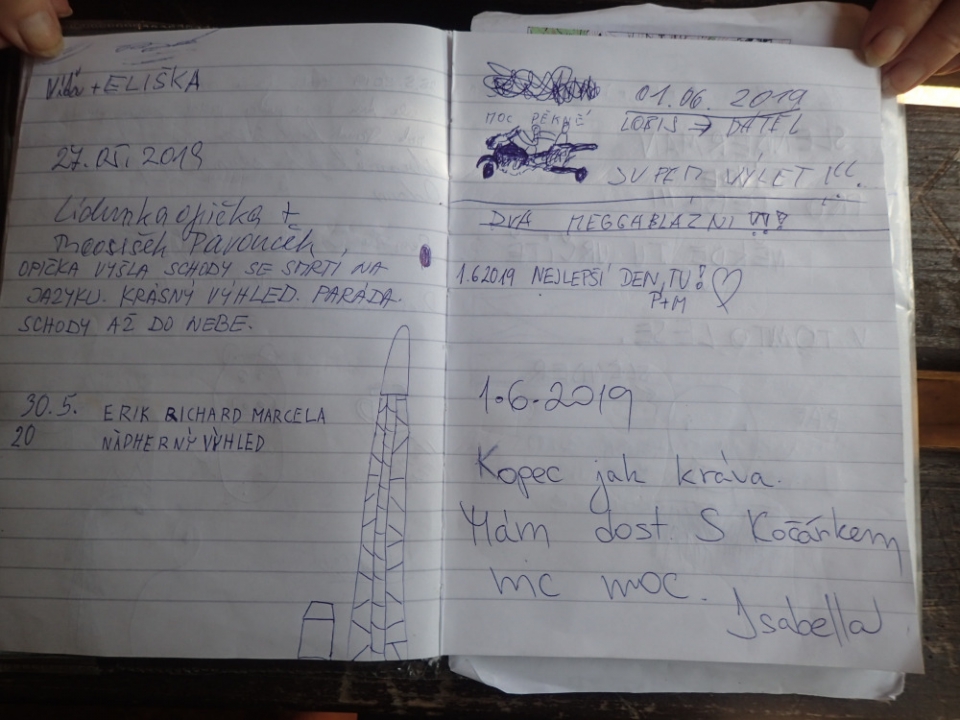 + ELIŠKA
27. 05. 2019
Lidunka opička +
Pavouček,
OPIČKA VYŠLA SCHODY SE SMRTÍ NA
JAZYKU. KRÁSNÝ VÝHLED. PARÁDA.
SCHODY AŽ DO NEBE.
30.5. ERIK RICHARD MARCELA
20 NÁDHERNÝ VÝHLED
01.06. 2019
MOC PĚKNÉ
→ DATEL
SUPER VÝLET !!!
DVA MEGGABLÁZNI !!!
1.6 2019 NEJLEPŠÍ DEN, TU! ♡
P+M
1.6.2019
Kopec jak kráva.
Mám dost. S Kočárkem
nic moc.
Isabella